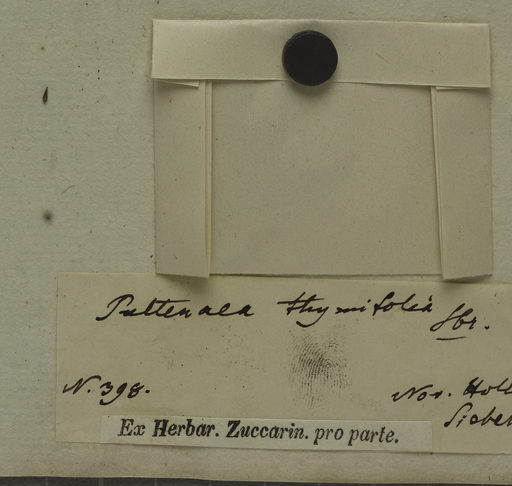 Pultenaea thymifolia Sbr.
N. 398.
Nov. Holl
Sieber
Ex Herbar. Zuccarin. pro parte.